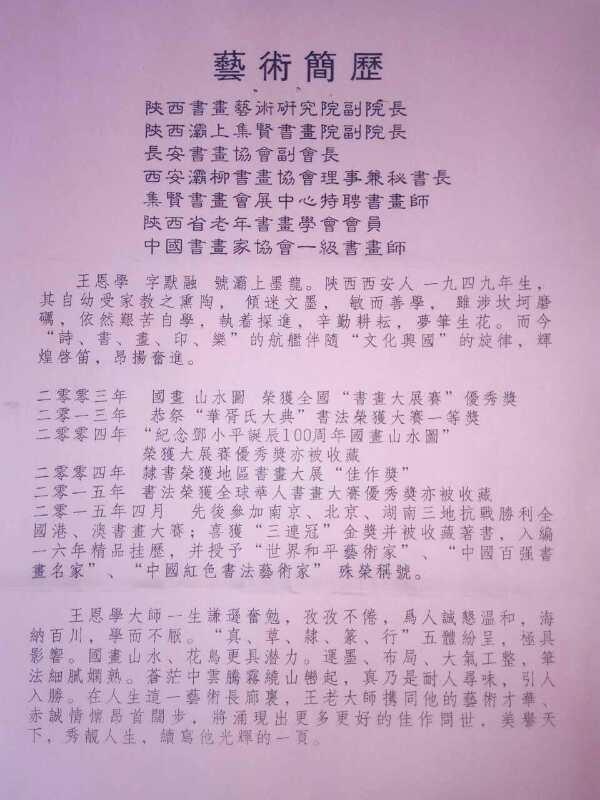 藝術簡歷
陝西書畫藝術研究院副院長
陝西灞上集賢書畫院副院長
長安書畫協會副會長
西安灞柳書畫協會理事兼秘書長
集賢書畫會展中心特聘書畫師
陝西省老年書畫學會會員
中國書畫家協會一級書畫師
王恩學 字默融 號灞上墨龍。陝西西安人 一九四九年生，
其自幼受家教之熏陶， 傾迷文墨， 敏而善學， 雖涉坎坷磨
礪，依然艱苦自學，執着探進，辛勤耕耘，夢筆生花。而今
“詩、書、畫、印、樂”的航艦伴隨“文化興國”的旋律，輝
煌啓笛，昂揚奮進。
二零零三年 國畫 山水圖 榮獲全國“書畫大展賽”優秀獎
二零一三年 恭祭“華胥氏大典”書法榮獲大賽一等獎
二零零四年 “紀念鄧小平誕辰100周年國畫山水圖”
榮獲大展賽優秀獎亦被收藏
二零零四年 隸書榮獲地區書畫大展“佳作獎”
二零一五年 書法榮獲全球華人書畫大賽優秀獎亦被收藏
二零一五年四月 先後參加南京、北京、湖南三地抗戰勝利全
國港、澳書畫大賽；喜獲“三連冠”金獎并被收藏著書，入編
一六年精品挂歷，并授予“世界和平藝術家”、“中國百强書
畫名家”、“中國紅色書法藝術家” 殊榮稱號。
王恩學大師一生謙遜奮勉，孜孜不倦，爲人誠懇温和，海
納百川，學而不厭。“真、草、隸、篆、行”五體紛呈，極具
影響。國畫山水、花鳥更具潜力。運墨、布局、大氣工整，筆
法細膩嫻熟。蒼茫中雲騰霧繞山巒起，真乃是耐人尋味，引人
入勝。在人生這一藝術長廊裏，王老大師携同他的藝術才華、
赤誠情懷昂首闊步，將涌現出更多更好的佳作問世，美譽天
下，秀靚人生，續寫他光輝的一頁。